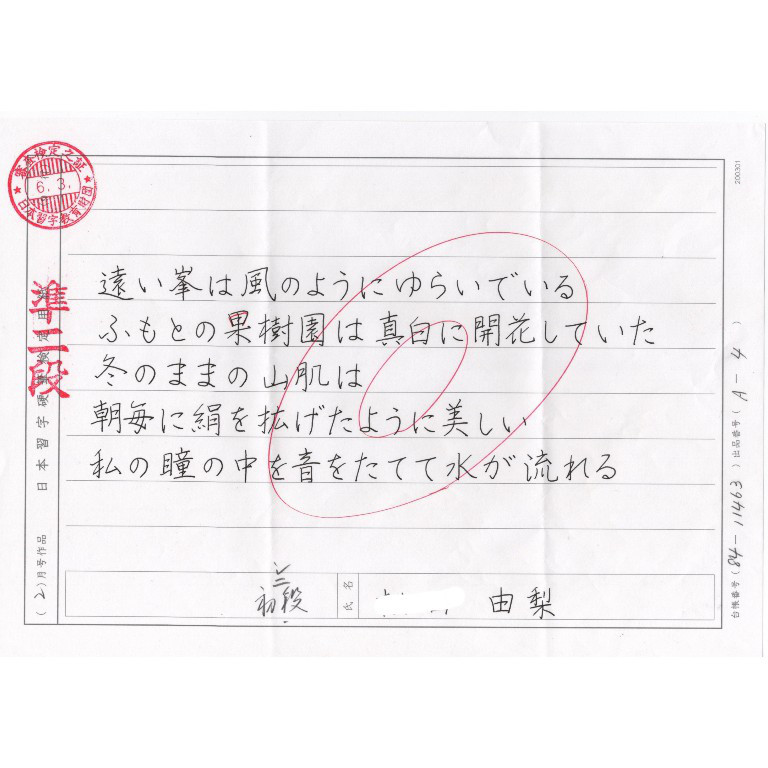 審査検定之証
6.3.
日本習字教育財団
準二段
遠い峯は風のようにゆらいでいる
ふもとの果樹園は真白に開花していた
冬のままの山肌は
朝毎に絹を拡げたように美しい
私の瞳の中を音をたてて水が流れる
初段
氏名
由梨
(2)月号作品
日本習字硬筆検定用紙
200301
台帳番号(84-11463)出品番号(A-4)